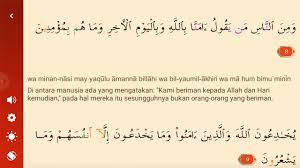 وَمِنَ النَّاسِ مَن يَقُولُ ءَامَنَّا بِاللَّهِ وَبِالْيَوْمِ الْأَخِرِ وَمَا هُم بِمُؤْمِنِينَ
8
wa minan-nāsi may yaqūlu āmannā billāhi wa bil-yaumil-ākhiri wa mā hum bimu`minīn
Di antara manusia ada yang mengatakan: "Kami beriman kepada Allah dan Hari
kemudian," pada hal mereka itu sesungguhnya bukan orang-orang yang beriman.
يُخَٰدِعُونَ اللَّهَ وَالَّذِينَ ءَامَنُوا۟ وَمَا يَخْدَعُونَ إِلَّآ أَنفُسَهُمْ وَمَا
يَشْعُرُونَ
9